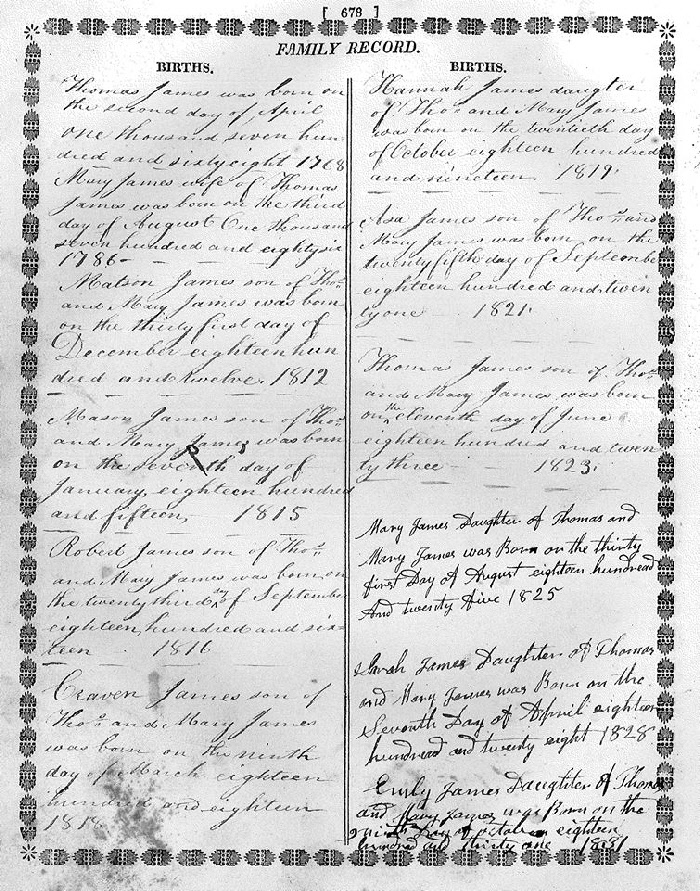 [ 678 ]
FAMILY RECORD.
BIRTHS.
Thomas James was born on
the second day of April
one thousand seven hun
dred and sixty eight 1768
Mary James wife of Thomas
James was born on the third
day of August One thousand
seven hundred and eighty six
1786
Matson James son of Thos
and Mary James was born
on the thirty first day of
December eighteen hun
dred and twelve 1812
Mason James son of Thos
and Mary James was born
on the seventh day of
January eighteen hundred
and fifteen 1815
Robert James son of Thos
and Mary James was born on
the twenty third day of September
eighteen hundred and six=
teen 1816
Craven James son of
Thos and Mary James
was born on the ninth
day of March eighteen
hundred and eighteen
1818
BIRTHS.
Hannah James daughter
of Thos and Mary James
was born on the twentieth day
of October eighteen hundred
and nineteen 1819
Asa James son of Thos and
Mary James was born on the
twenty fifth day of Septembe
eighteen hundred and twen
ty one 1821
Thomas James son of Thos
and Mary James was born
on the eleventh day of June
eighteen hundred and twen
ty three 1823
Mary James Daughter of Thomas and
Mary James was Born on the thirty
first Day of August eighteen hundread
And twenty five 1825
Sarah James Daughter of Thomas
and Mary James was Born on the
Seventh Day of April eighteen
hundred and twenty eight 1828
Emily James Daughter of Thomas
and Mary James was Born on the
Day of october eighteen
hundred and thirty one 1831